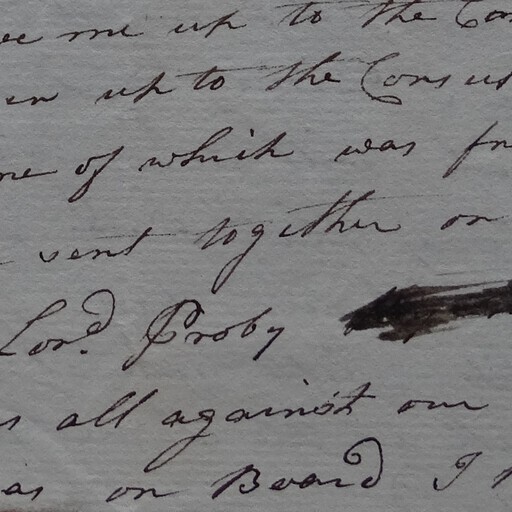 me up to the Con
up to the Consu
of which was fr
sent together on
Lord. Proby
all against our
as on Board I